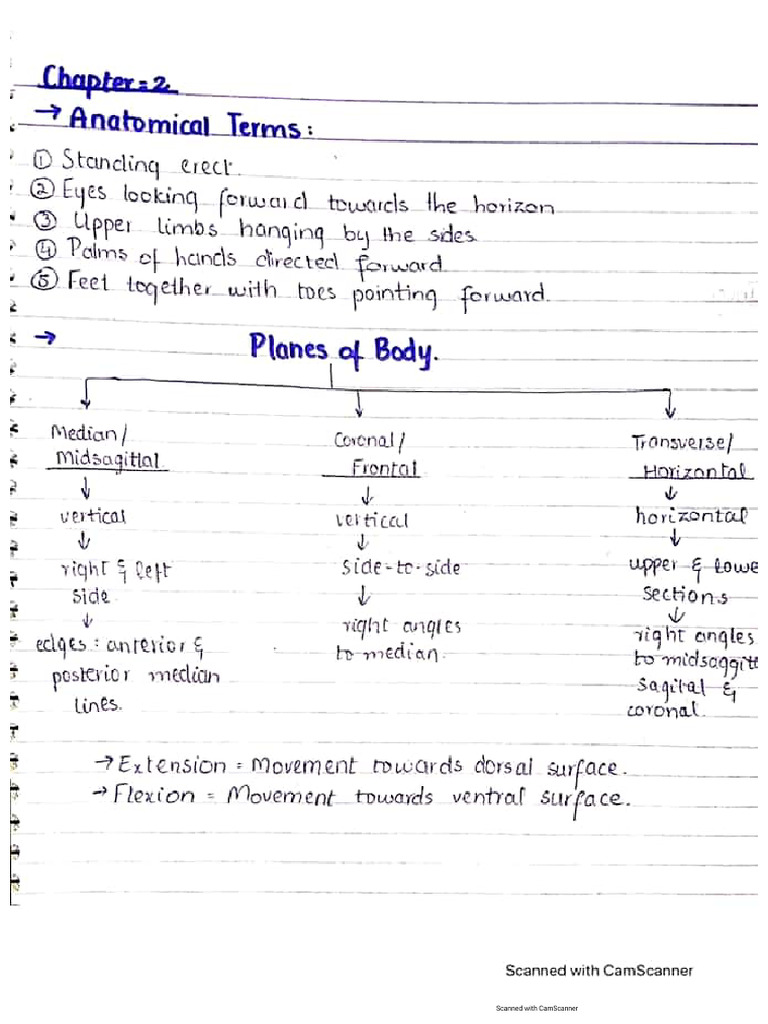 Chapter = 2
→ Anatomical Terms :
① Standing erect.
② Eyes looking forward towards the horizon
③ Upper limbs hanging by the sides
④ Palms of hands directed forward
⑤ Feet together with toes pointing forward.
→ Planes of Body.
Median/
Midsagittal
↓
vertical
↓
right & left
side
↓
edges : anterior &
posterior median
lines.
Coronal/
Frontal
↓
vertical
↓
side-to-side
↓
right angles
to median.
Transverse/
Horizontal
↓
horizontal
↓
upper & lowe
sections
↓
right angles
to midsaggitt
sagital &
coronal.
→ Extension = Movement towards dorsal surface.
→ Flexion = Movement towards ventral surface.
Scanned with CamScanner
Scanned with CamScanner